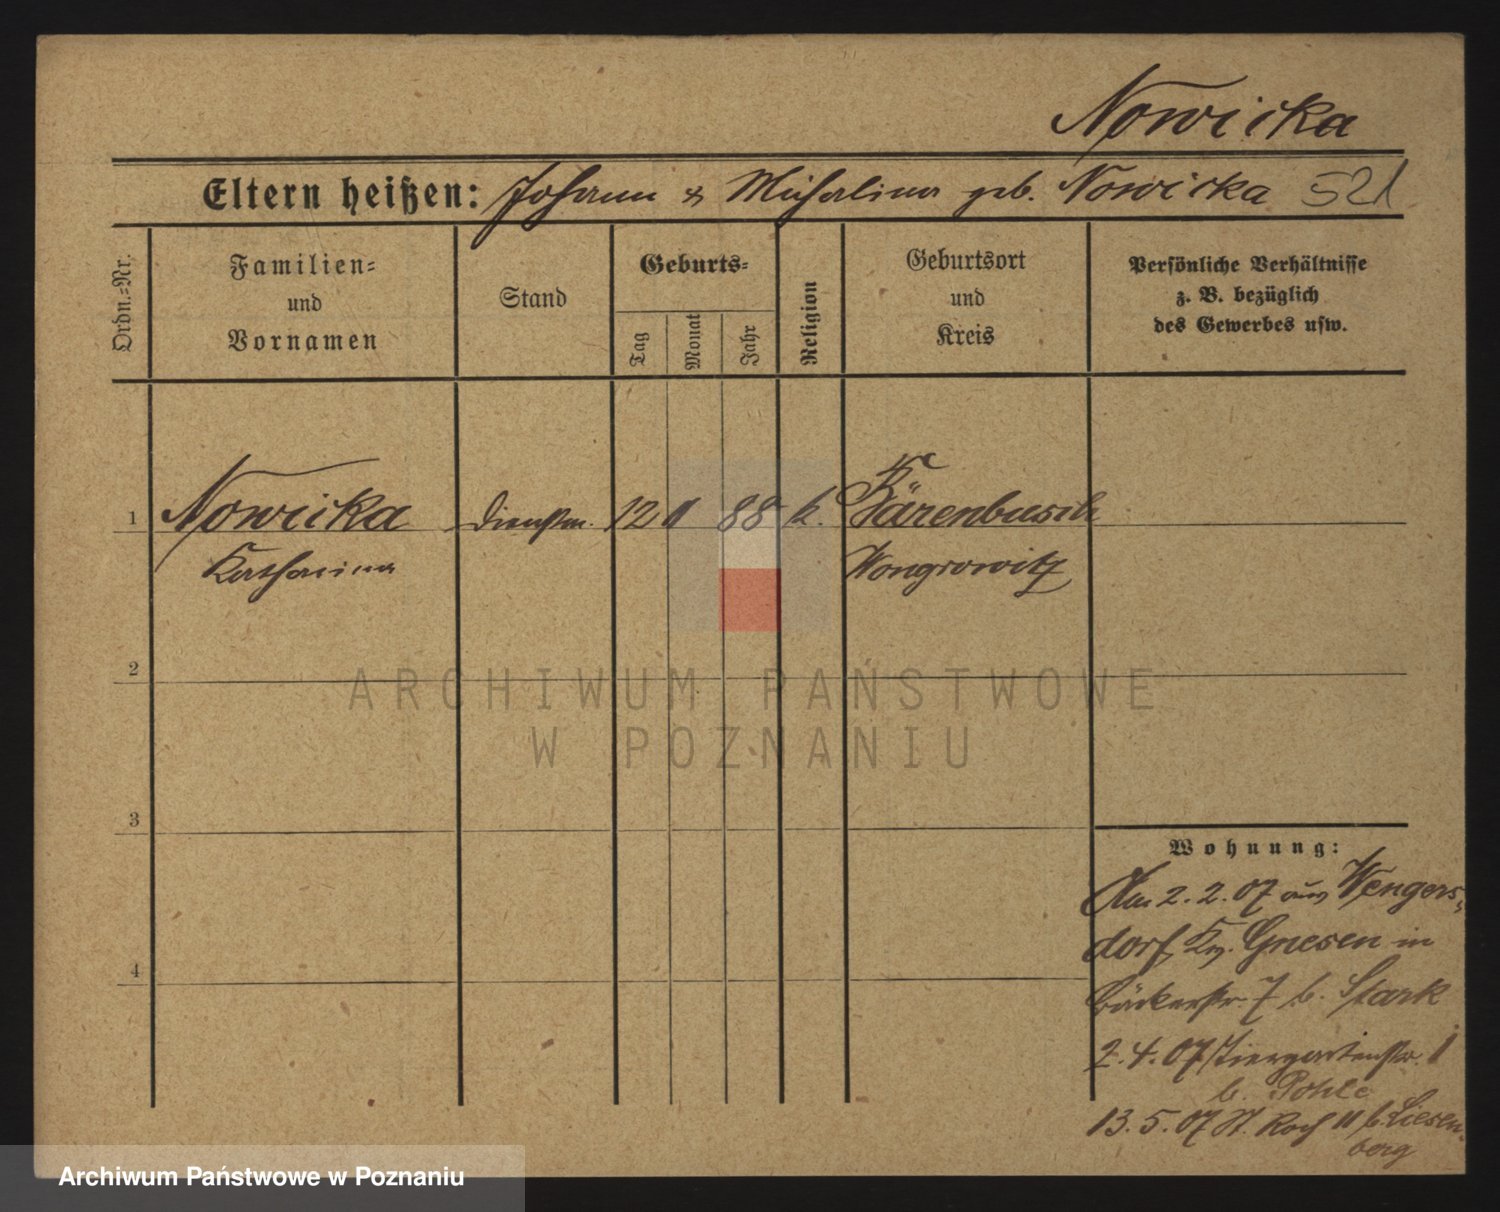 Nowicka
Eltern heißen: Johann & Michalina geb. Nowicka 521
Ordn.-Nr.
Familien-
und
Vornamen
Stand
Geburts-
Tag
Monat
Jahr
Religion
Geburtsort
und
Kreis
Persönliche Verhältnisse
z. B. bezüglich
des Gewerbes usw.
1 Nowicka Dienstm. 12 88 k. Bärenbusch
Katharina Wongrowitz
2
ARCHIWUM PAŃSTWOWE
W POZNANIU
3
Wohnung:
Am 2.2.07 aus Wengers-
dorf, Kr. Gnesen in
4
Bäckerstr. 7 b. Stark
2.4.07 Tiergartenstr. 1
b. Pohle
13.5.07 St. Roch 11 b. Liesen-
berg
Archiwum Państwowe w Poznaniu